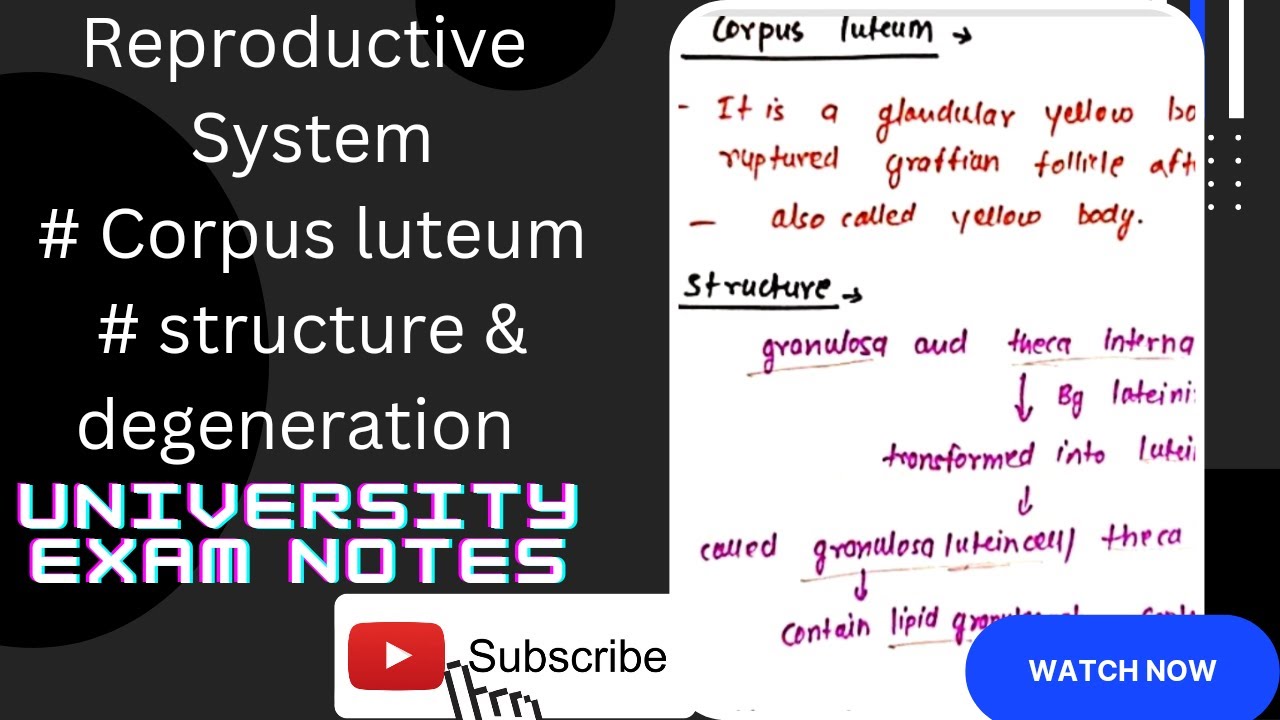 Reproductive
System
# Corpus luteum
# structure &
degeneration
UNIVERSITY
EXAM NOTES
Subscribe
Corpus luteum →
- It is a glandular yellow bo
ruptured graffian follicle aft
— also called yellow body.
Structure →
granulosa and theca interna
↓ Bg lateini
transformed into lutei
↓
called granulosa lutein cell/ theca
↓
contain lipid
WATCH NOW